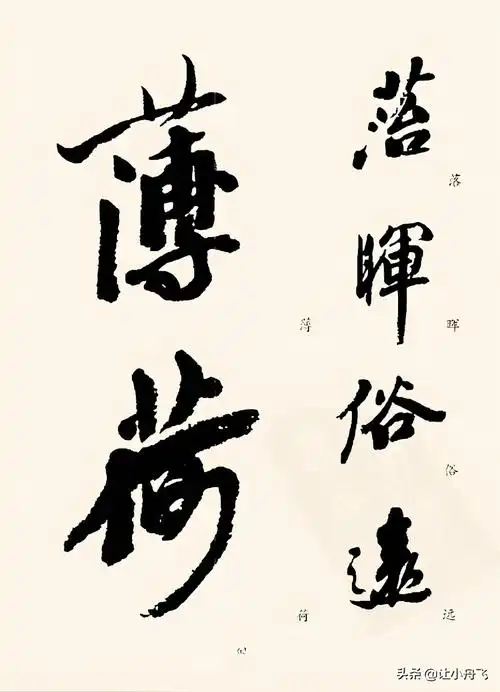 落暉俗遠
落
暉
俗
远
薄荷
薄
荷
头条 @让小丹飞